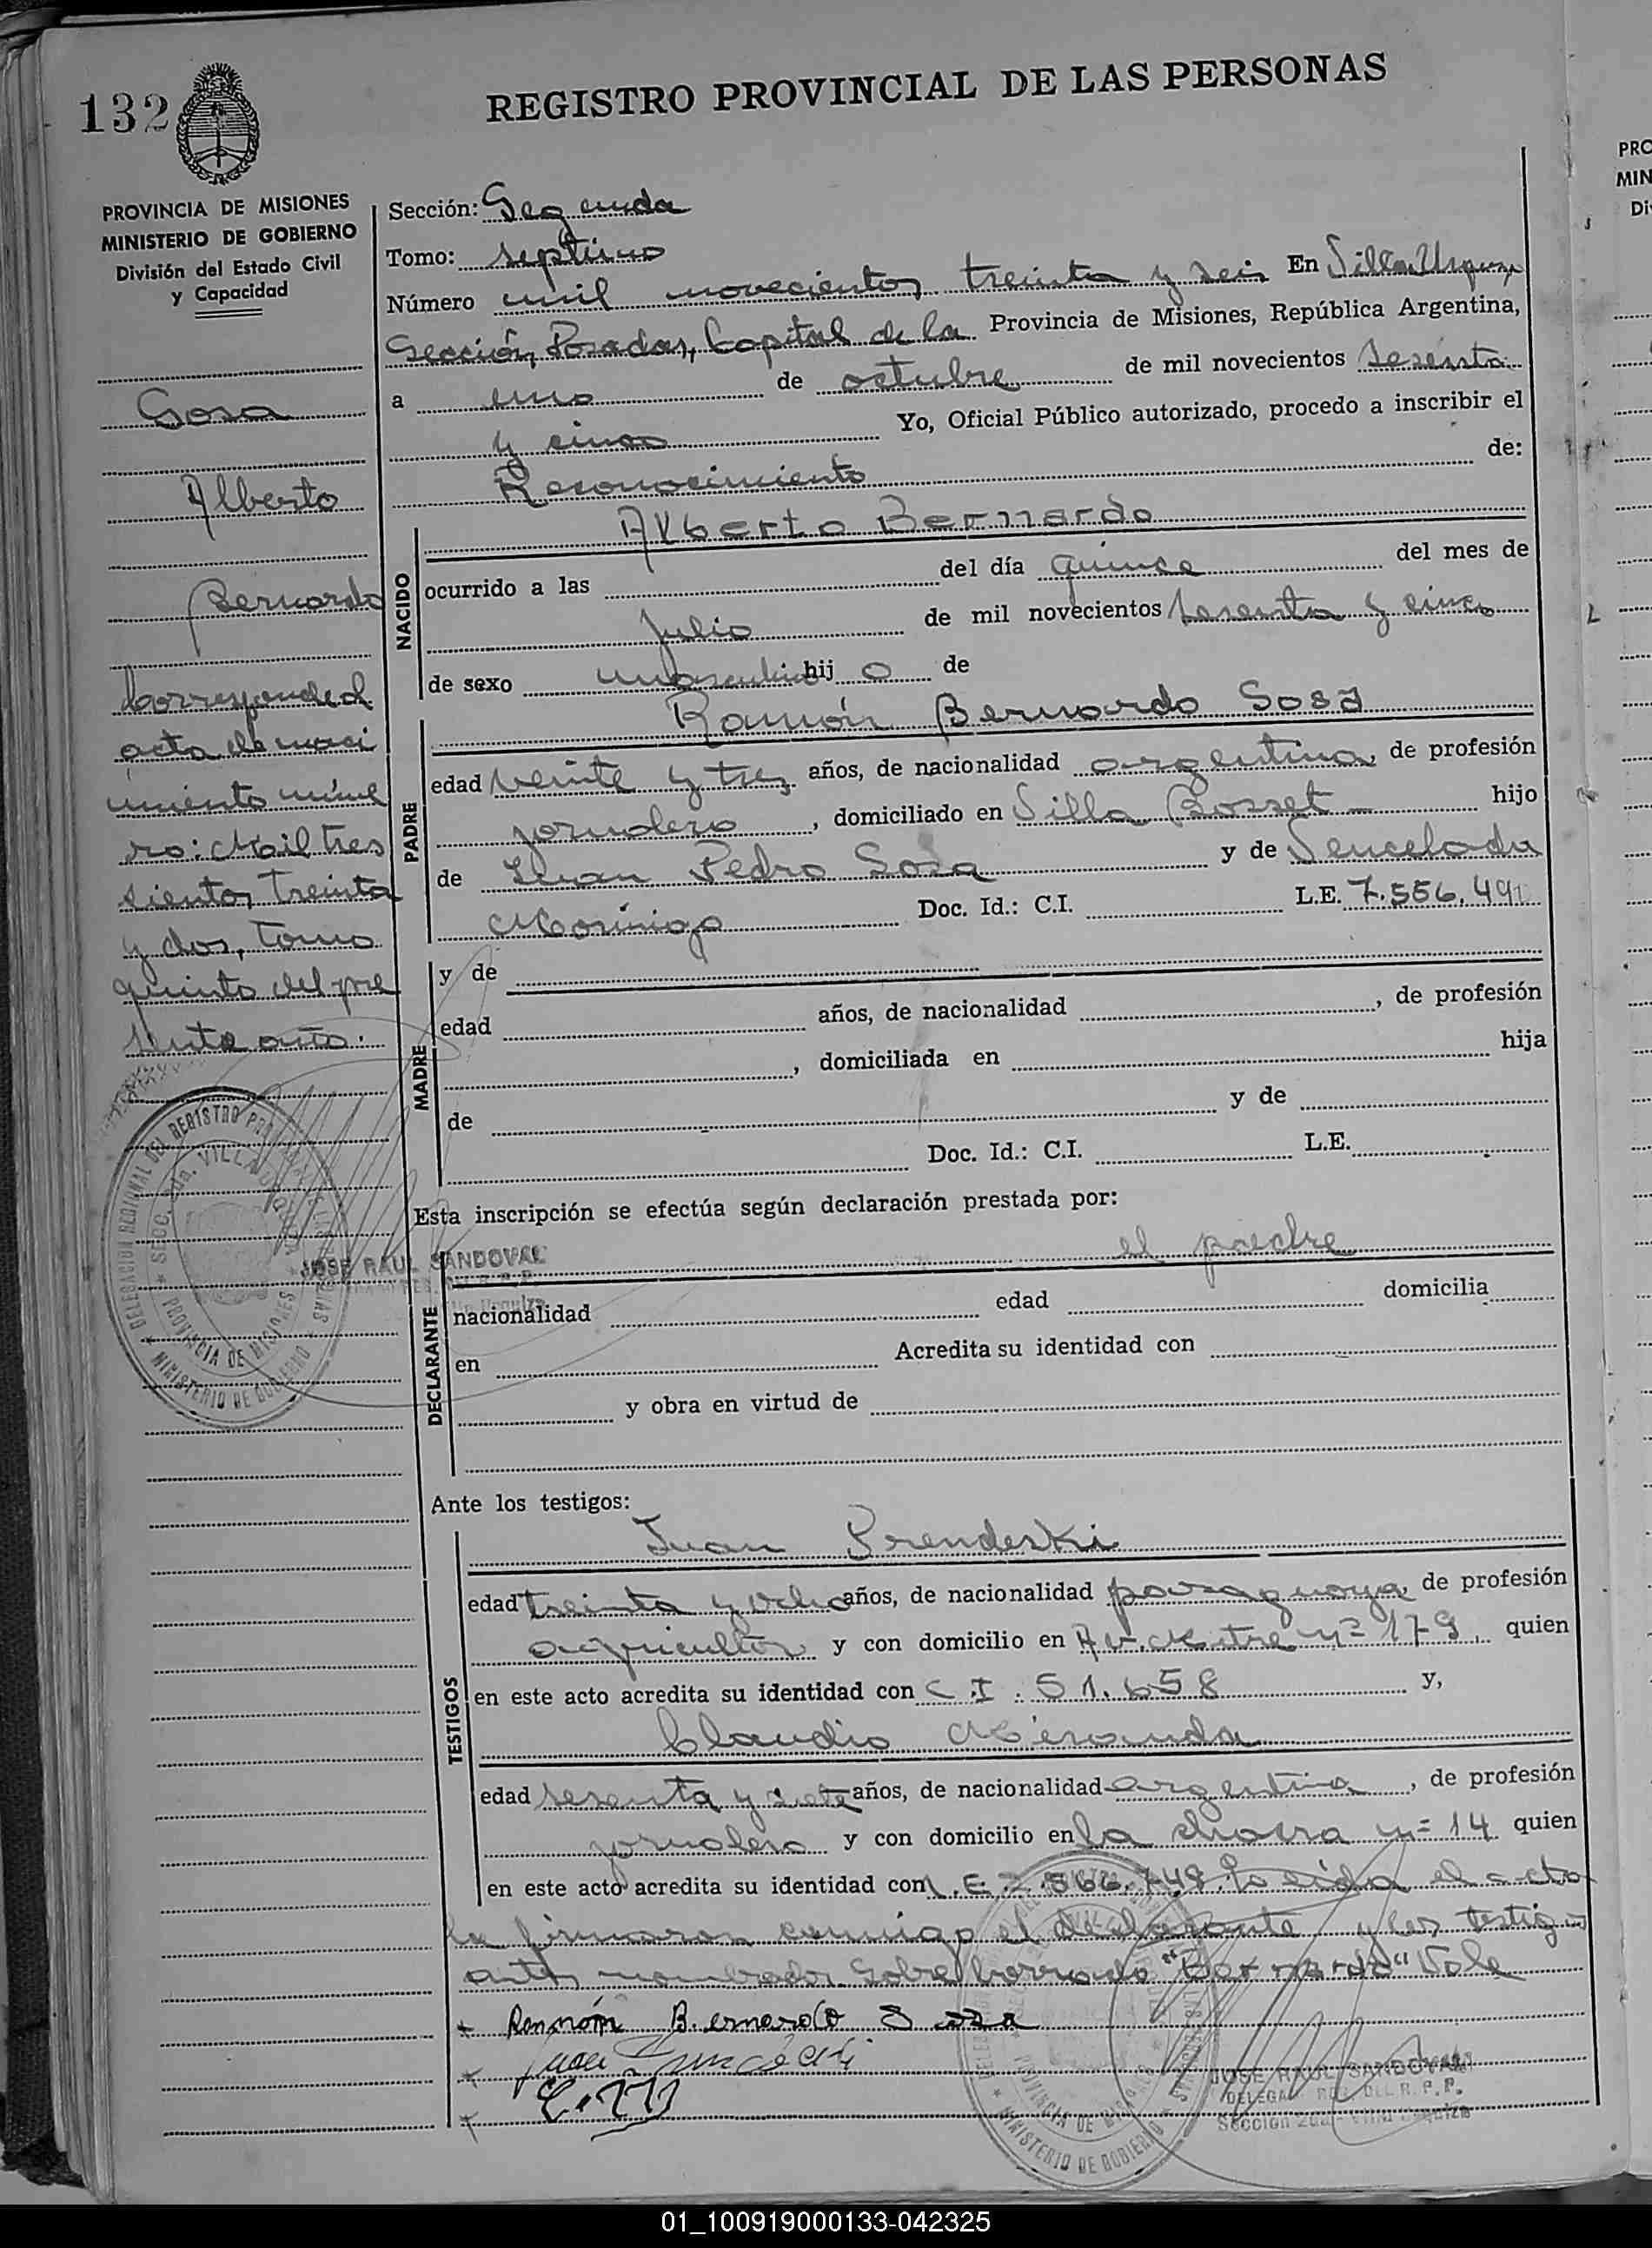 132
REGISTRO PROVINCIAL DE LAS PERSONAS
PROVINCIA DE MISIONES
MINISTERIO DE GOBIERNO
División del Estado Civil
y Capacidad
Sosa
Alberto
Bernardo
Corresponde al
acta de naci
miento núme
ro: Mil tres
sientos treinta
y dos, tomo
quinto del pre
sente año.
DELEGACION REGIONAL DEL REGISTRO PROVINCIAL DE LAS PERSONAS
SECC. 2da. VILLA URQUIZA
PROVINCIA DE MISIONES
MINISTERIO DE GOBIERNO
JOSE RAUL SANDOVAL
Sección: Segunda
Tomo: septimo
Número mil novecientos treinta y seis En Villa Urquiza
Sección, Posadas, Capital de la Provincia de Misiones, República Argentina,
a uno de octubre de mil novecientos sesenta
y cinco Yo, Oficial Público autorizado, procedo a inscribir el
Reconocimiento de:
NACIDO
Alberto Bernardo
ocurrido a las del día quince del mes de
julio de mil novecientos sesenta y cinco
de sexo masculino hijo de
PADRE
Ramón Bernardo Sosa
edad veinte y tres años, de nacionalidad argentina, de profesión
jornalero, domiciliado en Villa Bosset hijo
de Juan Pedro Sosa y de Wencelada
Morínigo Doc. Id.: C.I. L.E. 7.556.491
MADRE
y de
edad años, de nacionalidad , de profesión
, domiciliada en hija
de y de
Doc. Id.: C.I. L.E.
Esta inscripción se efectúa según declaración prestada por:
DECLARANTE
el padre
nacionalidad edad domicilia
en Acredita su identidad con
y obra en virtud de
Ante los testigos:
TESTIGOS
Juan Prendeski
edad treinta y ocho años, de nacionalidad paraguaya, de profesión
agricultor y con domicilio en Av. Mitre nº 179, quien
en este acto acredita su identidad con C.I. 51.658 y,
Claudio Miranda
edad sesenta y siete años, de nacionalidad argentina, de profesión
jornalero y con domicilio en la chacra nº 14 quien
en este acto acredita su identidad con L.E. 566.749. Leída el acta
la firmaron conmigo el declarante y los testigos
antes nombrados. Sobre borrado "Bernardo" Vale
Ramón Bernardo Sosa
Juan
JOSE RAUL SANDOVAL
DELEGADO REG. DEL R.P.P.
Sección 2da. - Villa Urquiza
DELEGACION REGIONAL DEL REGISTRO PROVINCIAL DE LAS PERSONAS
PROVINCIA DE MISIONES
MINISTERIO DE GOBIERNO
PRO
MIN
Di
01_100919000133-042325